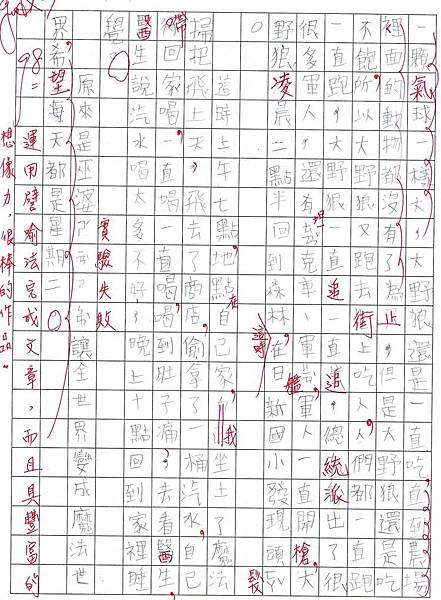 一顆氣球一樣大,還是一直吃,還到農場
裡面的動物都沒有了為止,但是野狼還是吃
不飽,所以大野狼又跑去街上吃人,人們都
一直跑,大野狼一直追 總統派出了很
很多軍人,還有坦克車、軍艦 一直開槍,大
野狼凌晨二點半回到森林,在日新國小發現
這時
上午七點地點在自己家,我坐上魔法
掃把飛上天,一直飛去商店偷拿了一桶汽水,自己
帶回家喝,一直喝,喝到肚子痛,去看醫生,
醫生說汽水喝太多不好,晚上十點回到家裡睡
覺。
實驗失敗
原來是巫婆 讓全世界變成魔法世
界,希望每天都是星期二。
98=
運用譬喻法完成文章,而且具豐富的
想像力,很棒的作品。